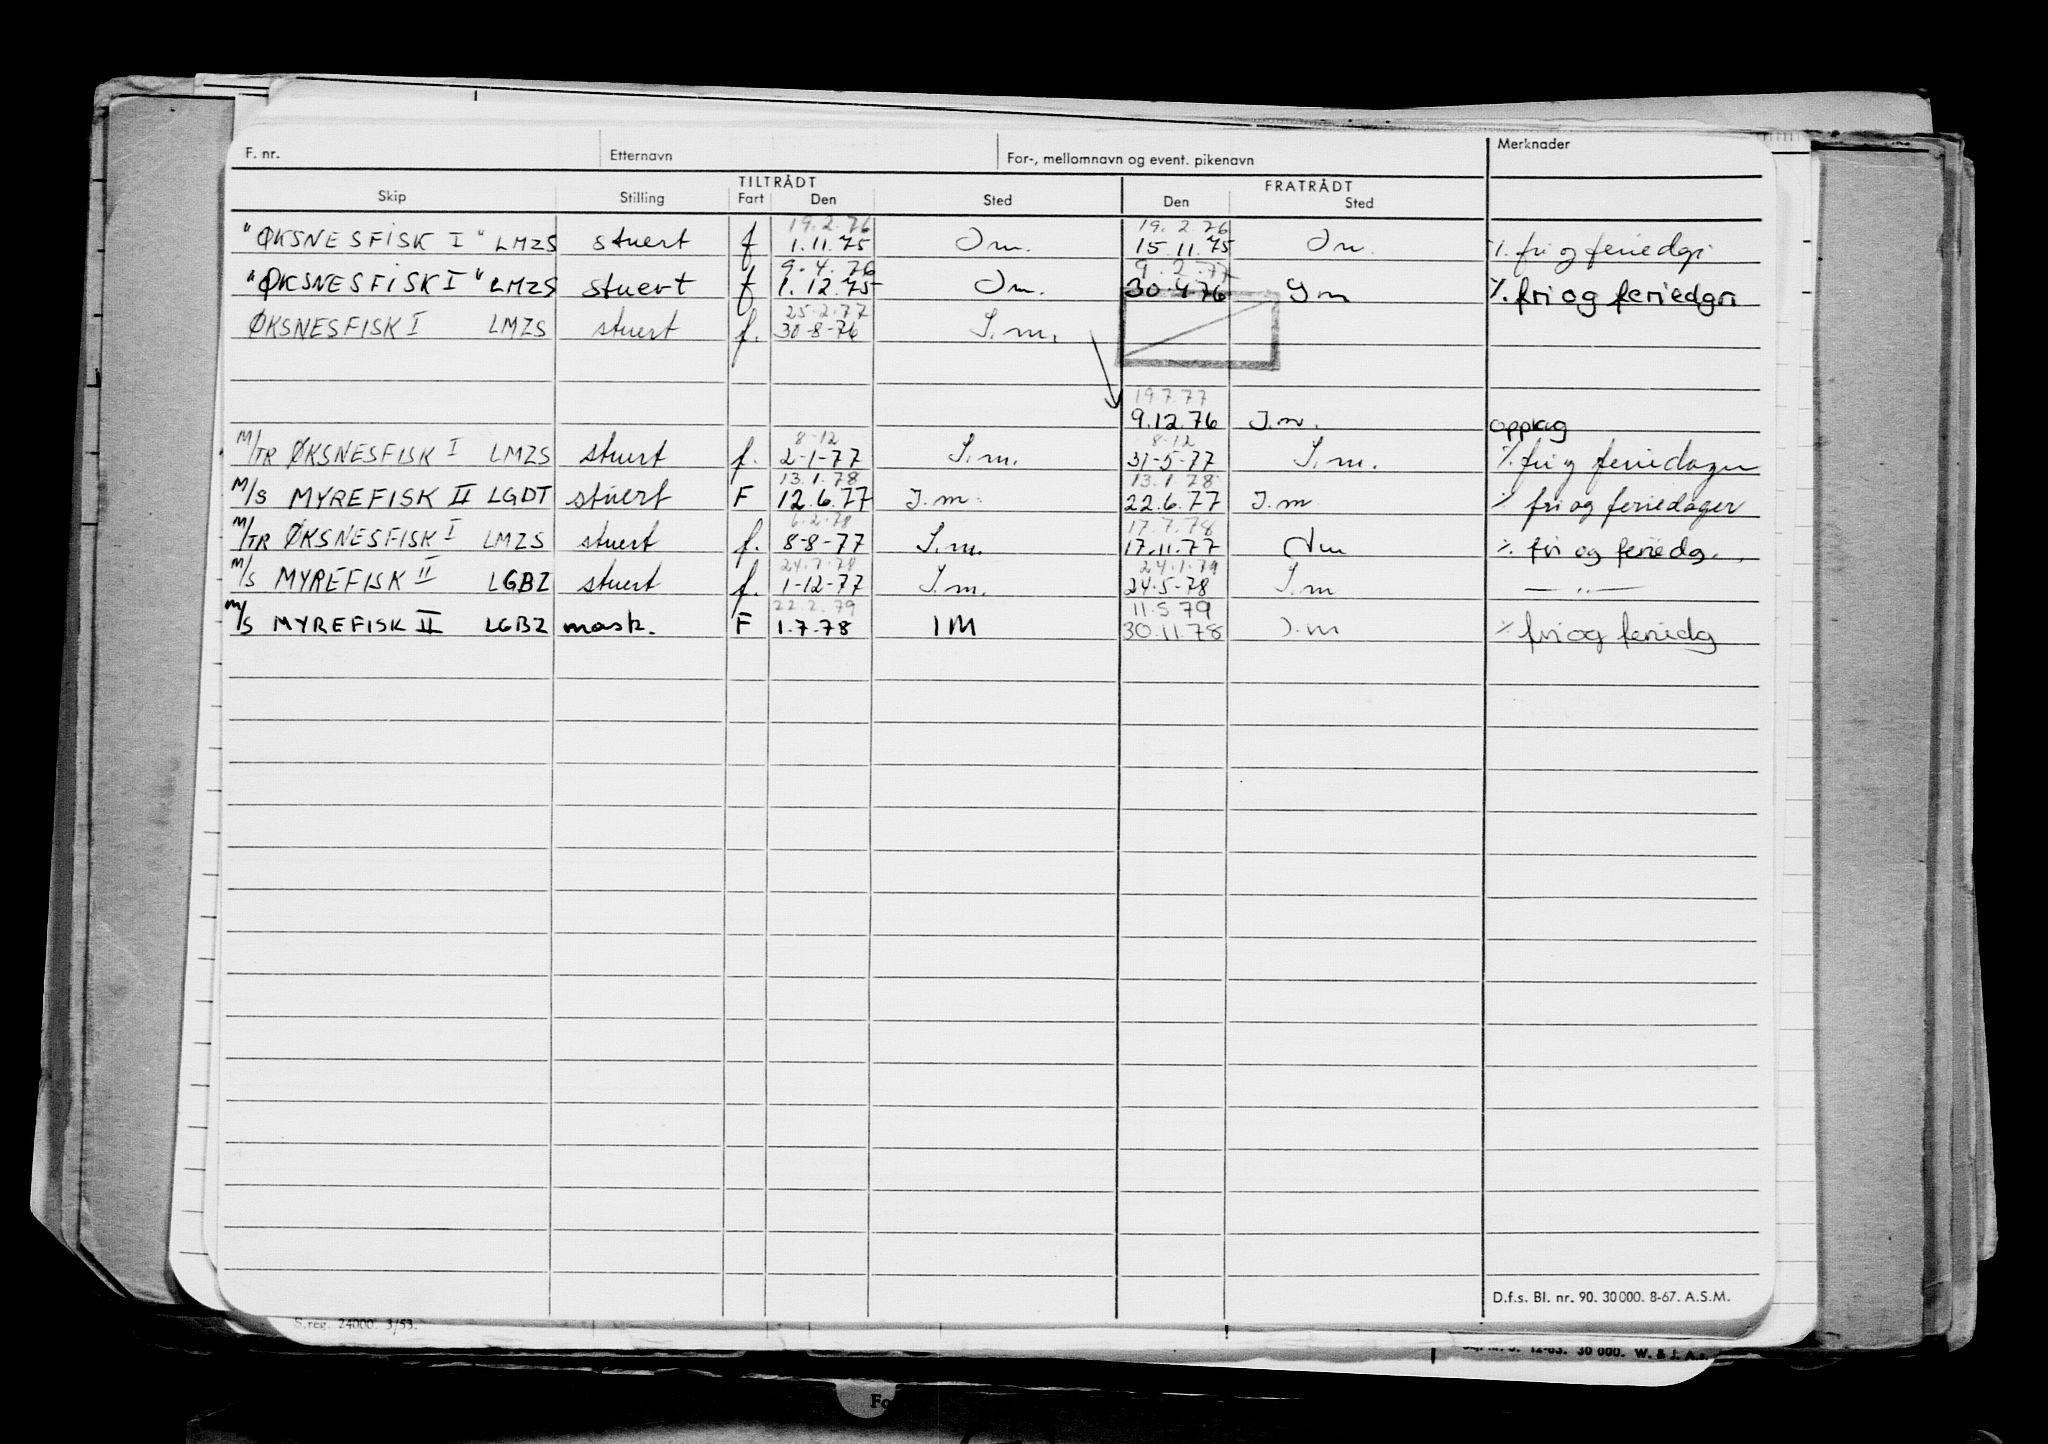 F. nr. Etternavn For-, mellomnavn og event. pikenavn Merknader
TILTRÅDT FRATRÅDT
Skip Stilling Fart Den Sted Den Sted
19.2.76 19.2.76
"ØKSNESFISK I" LMZS stuert f 1.11.75 Im. 15.11.75 Im. % fri og feriedgr
9.4.76 9.2.77
"ØKSNESFISK I" LMZS stuert f 1.12.75 Im. 30.4.76 Im % fri og feriedgr
25.2.77
ØKSNESFISK I LMZS stuert f. 30-8-76 I.m.
19.7.77
9.12.76 I.m. opplag
8-12 8-12
M/TR ØKSNESFISK I LMZS stuert f. 2-1-77 I.m. 31-5-77 I.m. % fri og feriedager
13.1.78 13.1.78
M/S MYREFISK II LGDT stuert F 12.6.77 I.m. 22.6.77 I.m. % fri og feriedager
6.2.78 17.7.78
M/TR ØKSNESFISK I LMZS stuert f. 8-8-77 I.m. 17.11.77 Im % fri og feriedg.
24.7.78 24.1.79
M/S MYREFISK II LGBZ stuert f. 1-12-77 I.m. 24.5-78 I.m — " —
22.2.79 11.5.79
M/S MYREFISK II LGBZ mask. F 1.7.78 IM 30.11.78 I.m % fri og feriedg
D.f.s. Bl. nr. 90. 30000. 8-67. A.S.M.
S.reg. 24000 3/53.
12-63. 30 000. W. & J. A.s.